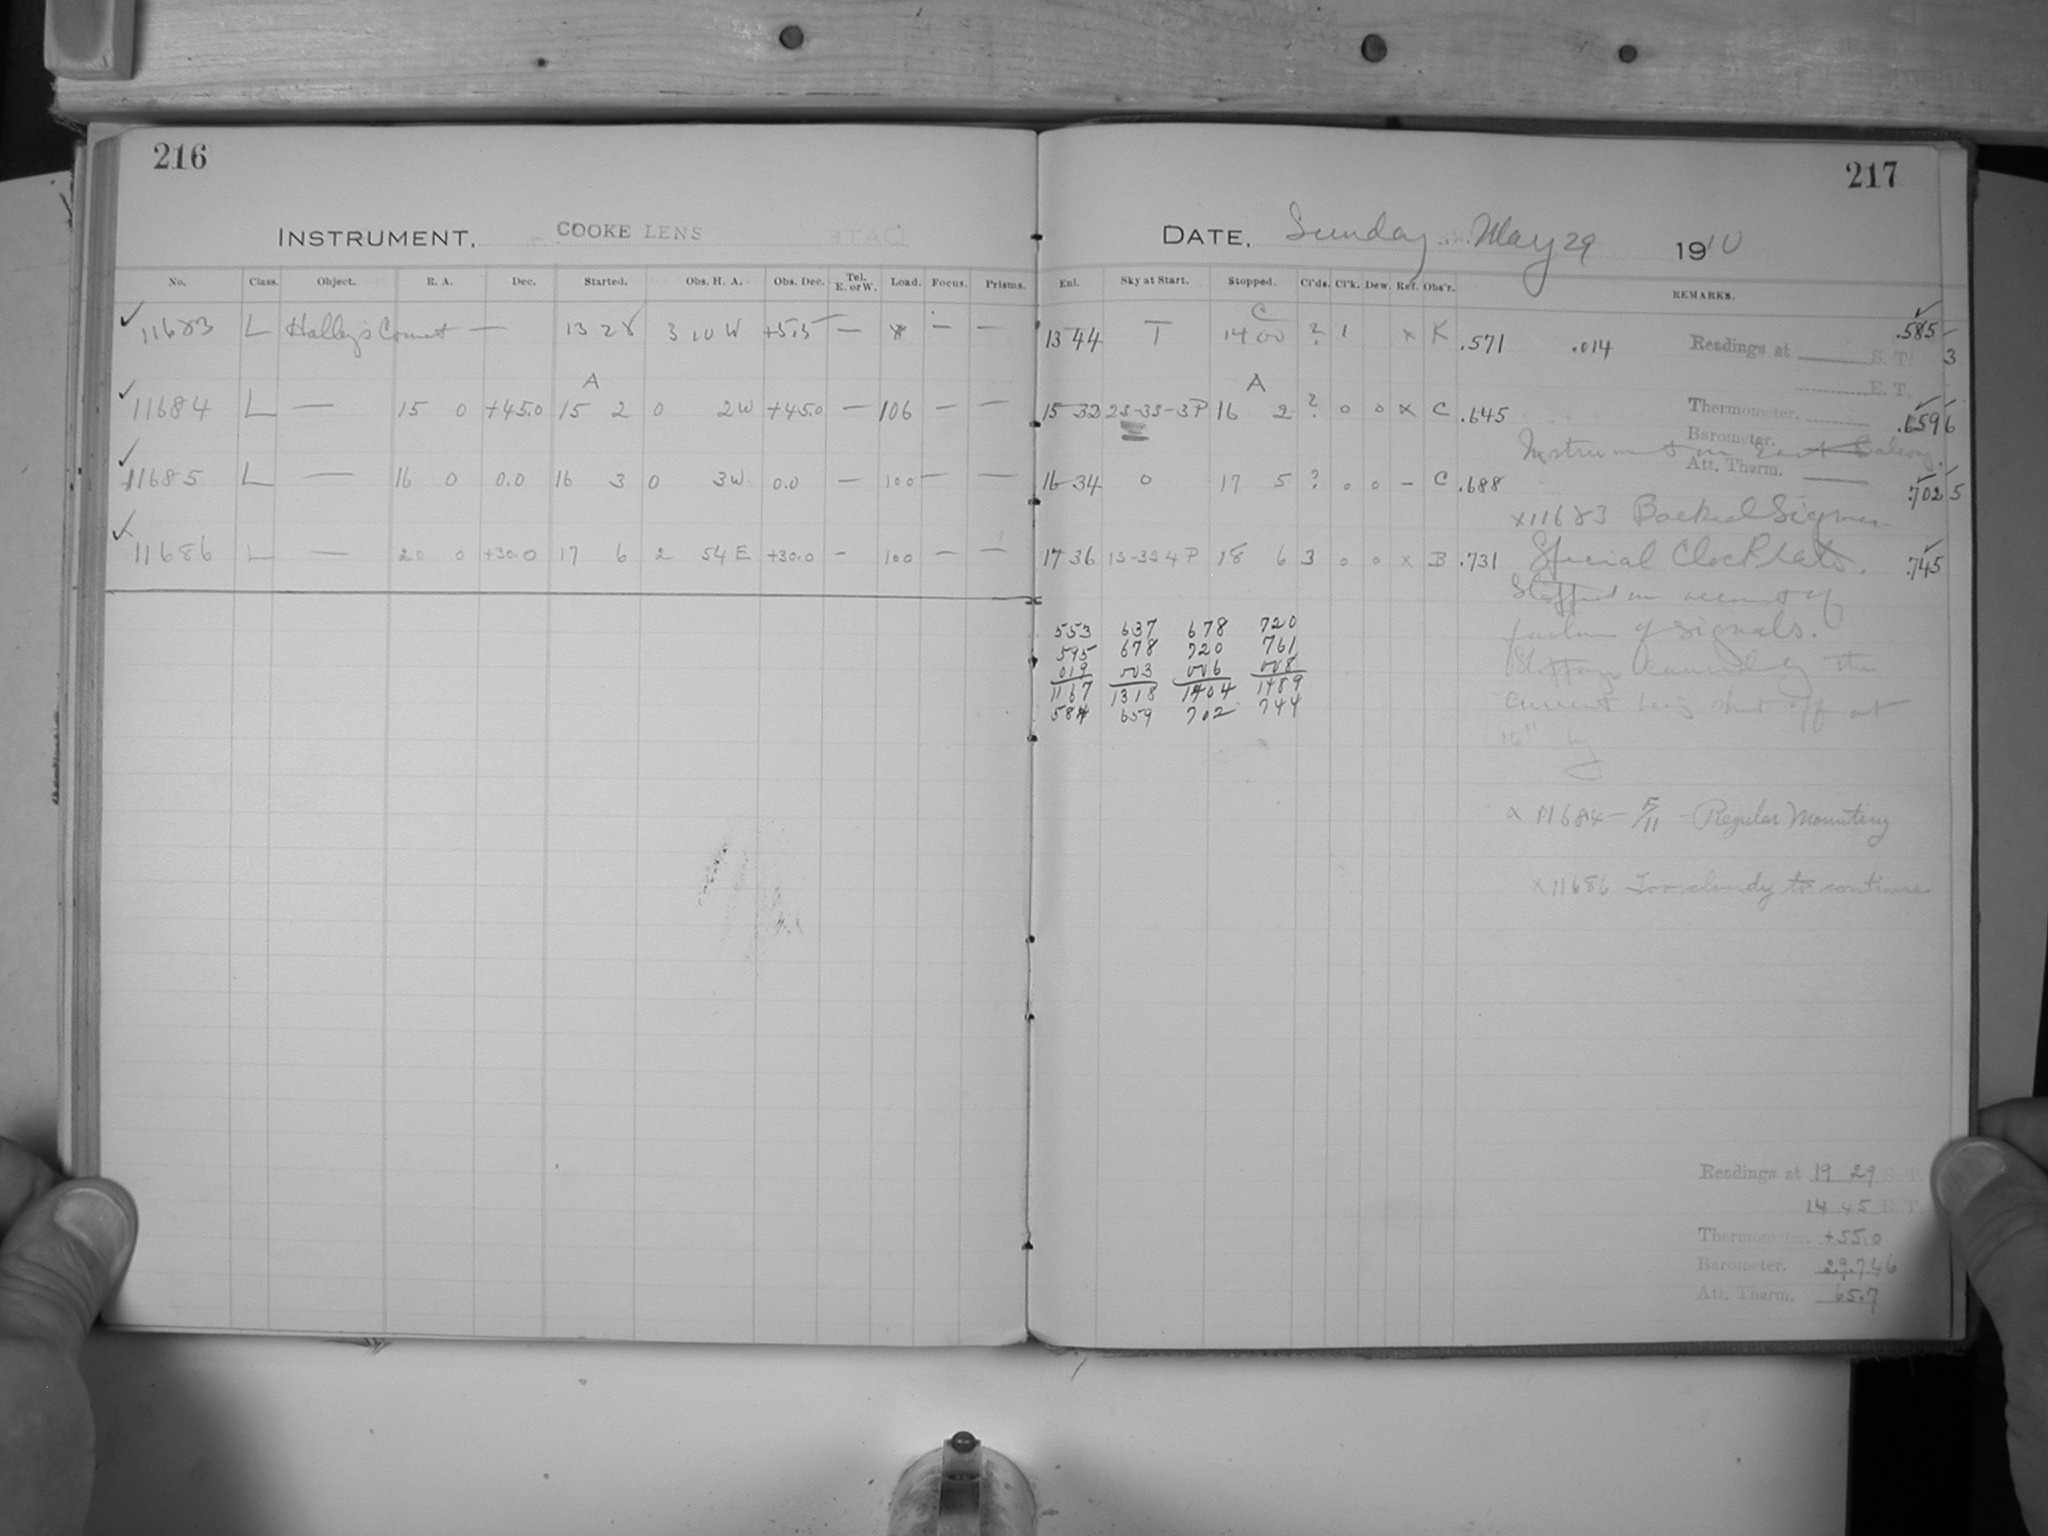 216
INSTRUMENT, COOKE LENS
No. Class. Object. R. A. Dec. Started. Obs. H. A. Obs. Dec. Tel. E. or W. Load. Focus. Prisms.
11683 L Halley's Comet — 13 28 3 10 W +5.5 — * — —
A
11684 L — 15 0 +45.0 15 2 0 2W +45.0 — 106 — —
11685 L — 16 0 0.0 16 3 0 3W 0.0 — 100 — —
11686 L — 20 0 +30.0 17 6 2 54 E +30.0 — 100 — —
217
DATE, Sunday May 29 1910
Enl. Sky at Start. Stopped. Cl'ds. Cl'k. Dew. Ref. Obs'r. REMARKS.
C
13 44 T 14 00 ? 1 x K .571 .014 .585 3
Readings at S. T.
E. T.
A
15 32 2S-3S-3P 16 2 ? 0 0 x C .645 .659 6
Thermometer.
Barometer.
Instrument on East Balcony.
Att. Therm.
16 34 0 17 5 ? 0 0 – C .688 .702 5
x11683 Backed Sigma
17 36 1S-3S 4P 18 6 3 0 0 x B .731 .745
Special Clock Plate.
Stopped on account of
failure of signals.
the
current being shut off at
by
553 637 678 720
595 678 720 761
019 003 006 008
1167 1318 1404 1489
584 659 702 744
x 11684 – F/11 - Regular Mounting
x 11686 Too cloudy to continue
Readings at 19 29 S. T.
14 45 E. T.
Thermometer. +55.0
Barometer. 29.746
Att. Therm. 65.7